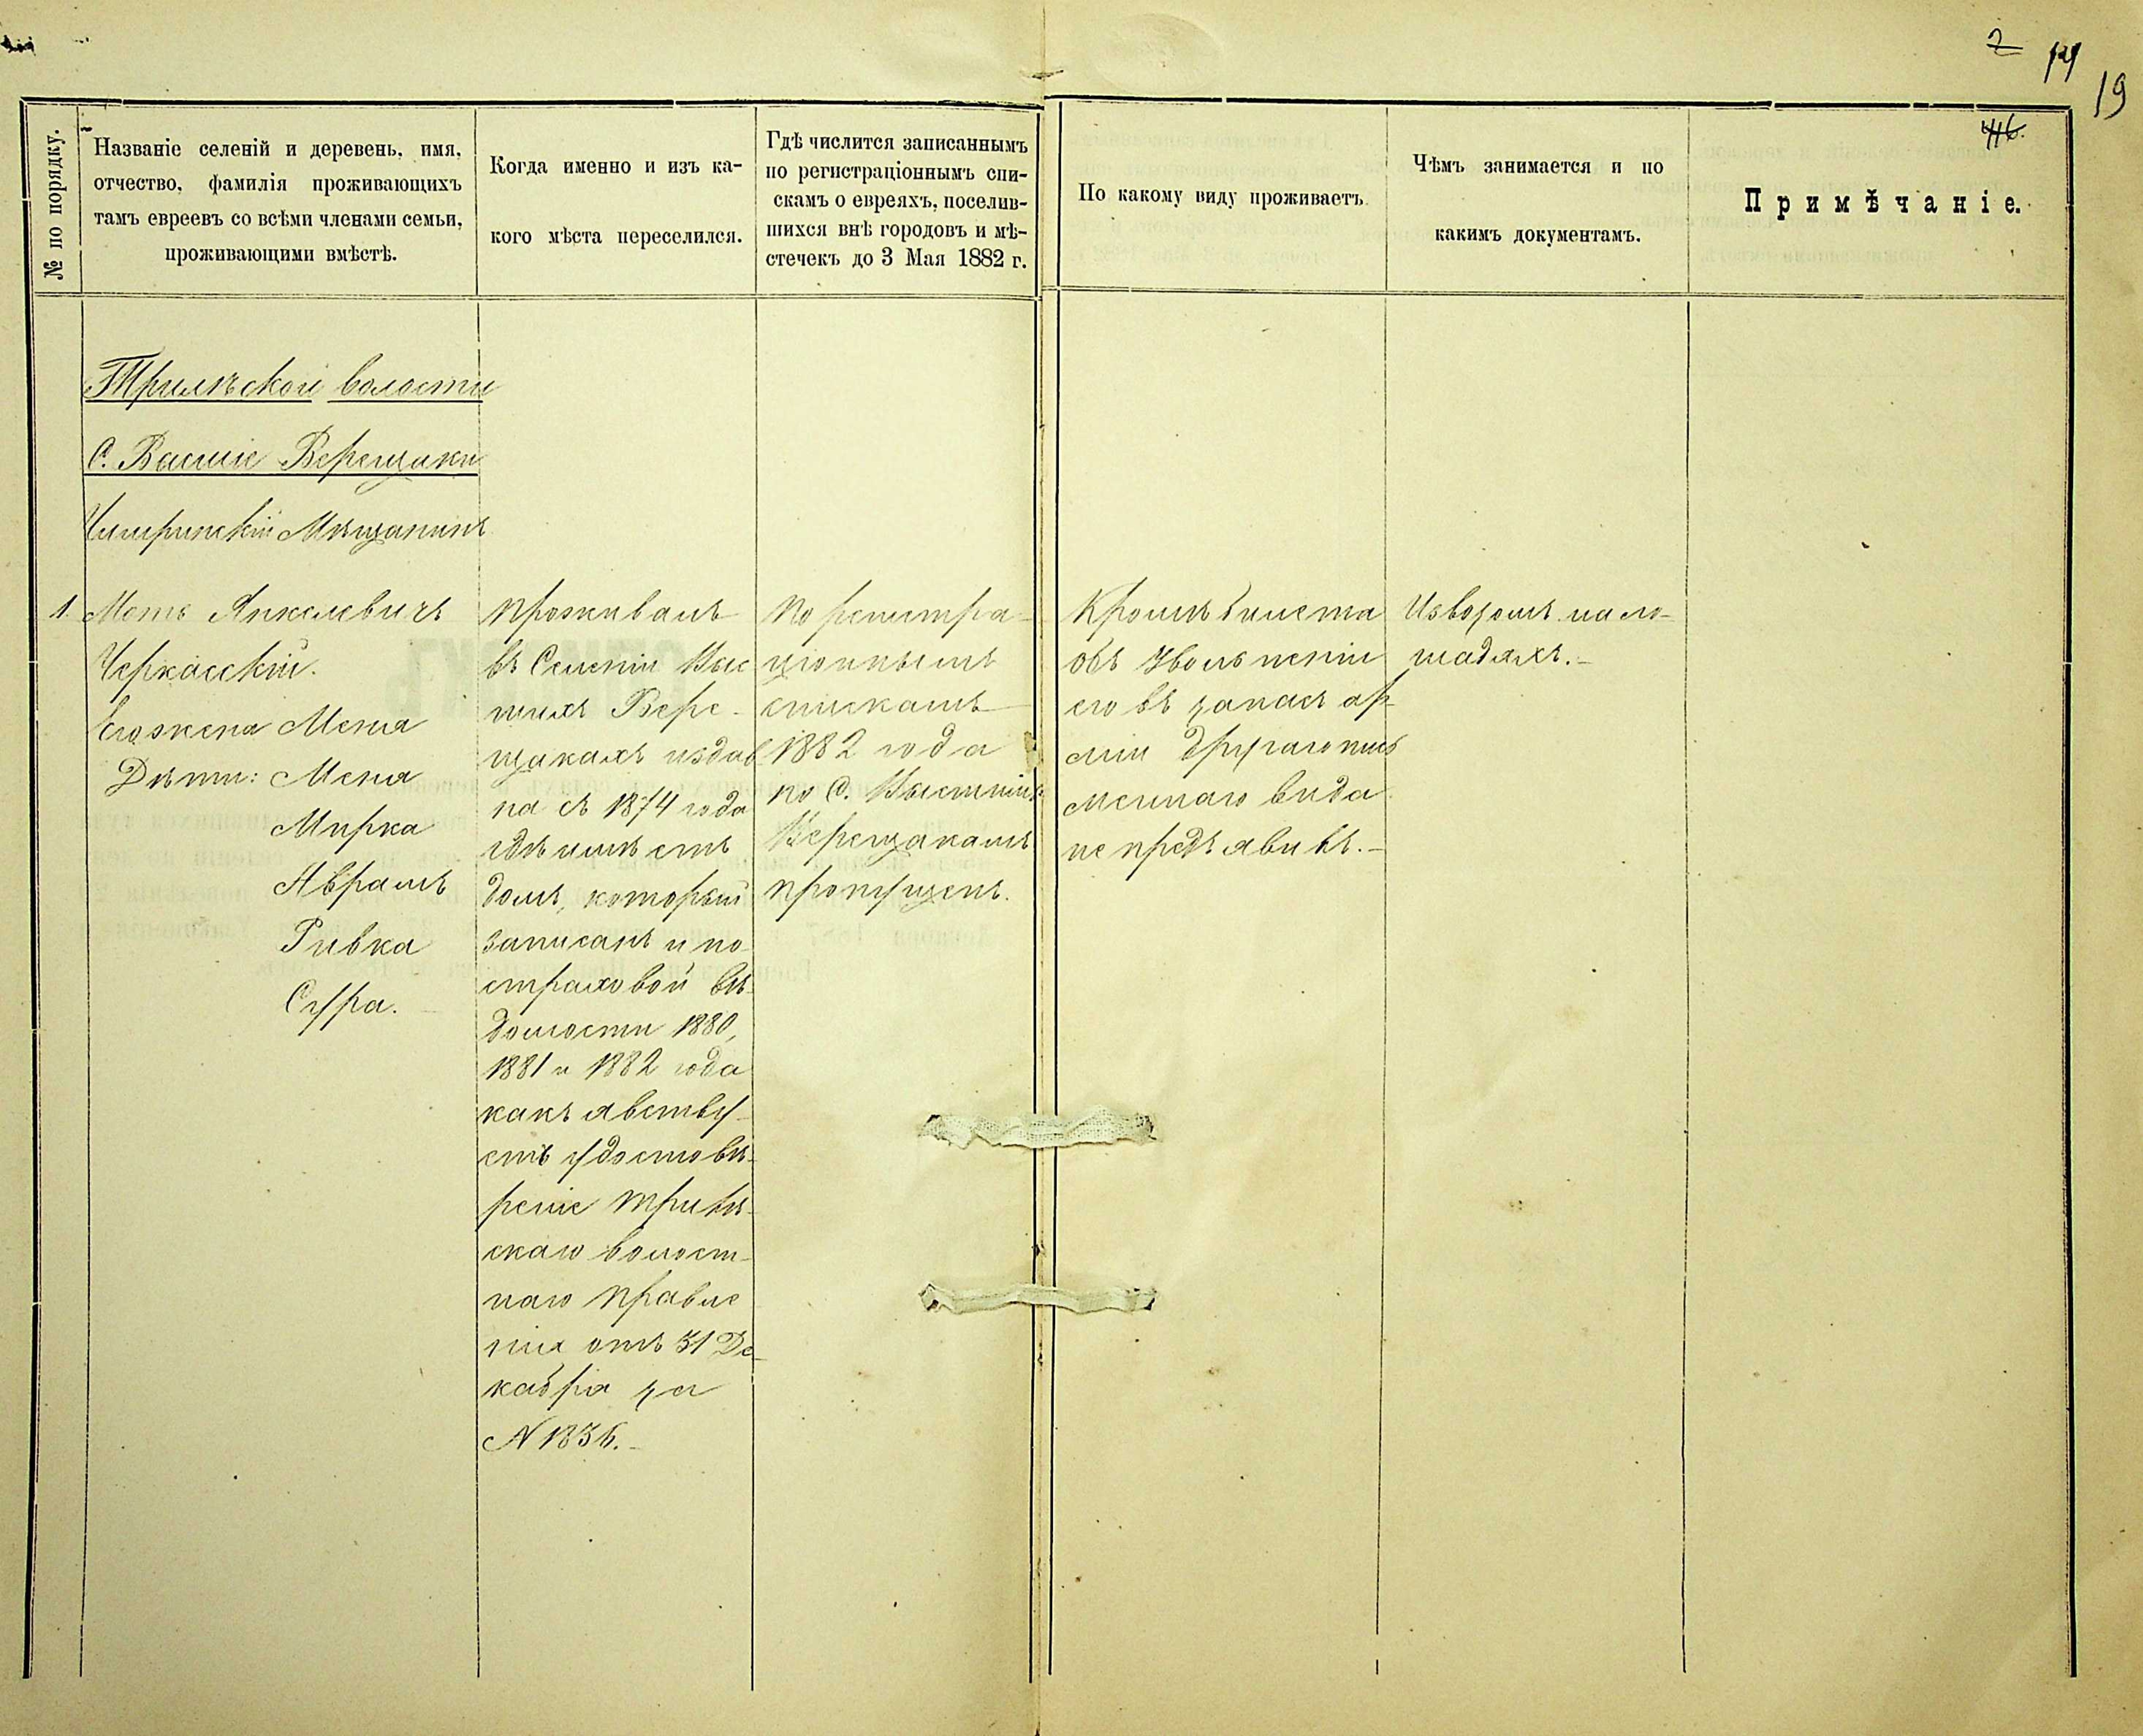 2 14
19
46.
№ по порядку.
Названіе селеній и деревень, имя,
отчество, фамилія проживающихъ
тамъ евреевъ со всѣми членами семьи,
проживающими вмѣстѣ.
Когда именно и изъ ка-
кого мѣста переселился.
Гдѣ числится записаннымъ
по регистраціоннымъ спи-
скамъ о евреяхъ, поселив-
шихся внѣ городовъ и мѣ-
стечекъ до 3 Мая 1882 г.
По какому виду проживаетъ.
Чѣмъ занимается и по
какимъ документамъ.
Примѣчаніе.
Трилѣской волости
С. Верещаки
Чигиринскій Мѣщанинъ
1. Мотъ Янкелевичъ
Черкасскій.
Его жена Меня
Дѣти: Меня
Мирка
Аврамъ
Ривка
Сура.
Проживалъ
въ Селеніи Выс
шихъ Вере-
щакахъ издав
на съ 1874 года
гдѣ имѣетъ
домъ, который
записанъ и по
страховой вѣ-
домости 1880,
1881 и 1882 года
какъ явству-
етъ удостовѣ-
реніе Трилѣ-
скаго волост-
наго Правле
нія отъ 31 Де-
кабря за
N 1836.-
По регистра-
ціоннымъ
спискамъ
1882 года
по С. Высшимъ
Верещакамъ
пропущенъ.
Кромѣ билета
объ увольненіи
его въ запасъ ар-
міи другаго пись
меннаго вида
не предъявивъ.-
Извозомъ на ло-
шадяхъ.-